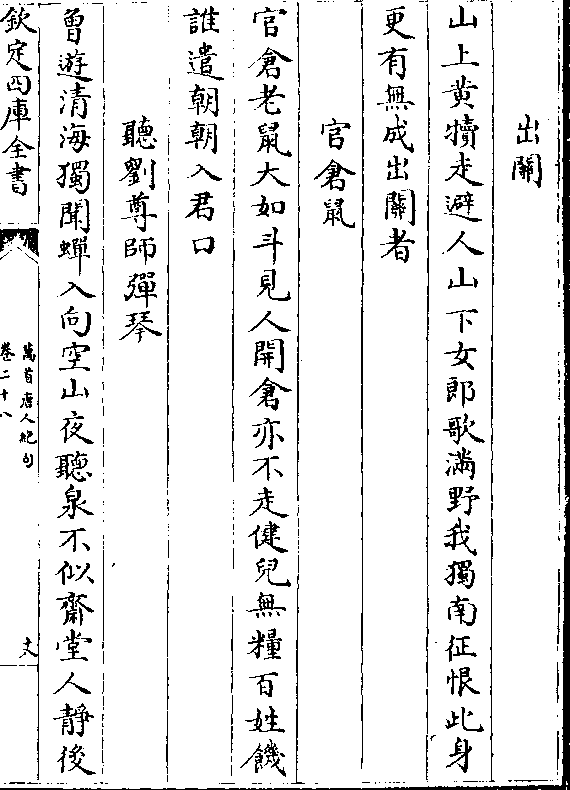 出關
山上黄犢走避人山下女郎歌滿野我獨南征恨此身
更有無成出關者
官倉鼠
官倉老鼠大如斗見人開倉亦不走健兒無糧百姓饑
誰遣朝朝入君口
聽劉尊師彈琴
曾遊清海獨聞蟬入向空山夜聽泉不似齋堂人靜後
欽定四庫全書
萬首唐人絶句
卷二十八